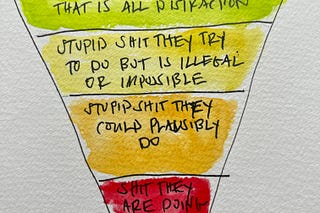 THAT IS ALL DISTRACTION
STUPID SHIT THEY TRY
TO DO BUT IS ILLEGAL
OR IMPOSSIBLE
STUPID SHIT THEY
COULD PLAUSIBLY
DO
SHIT THEY
ARE DOING